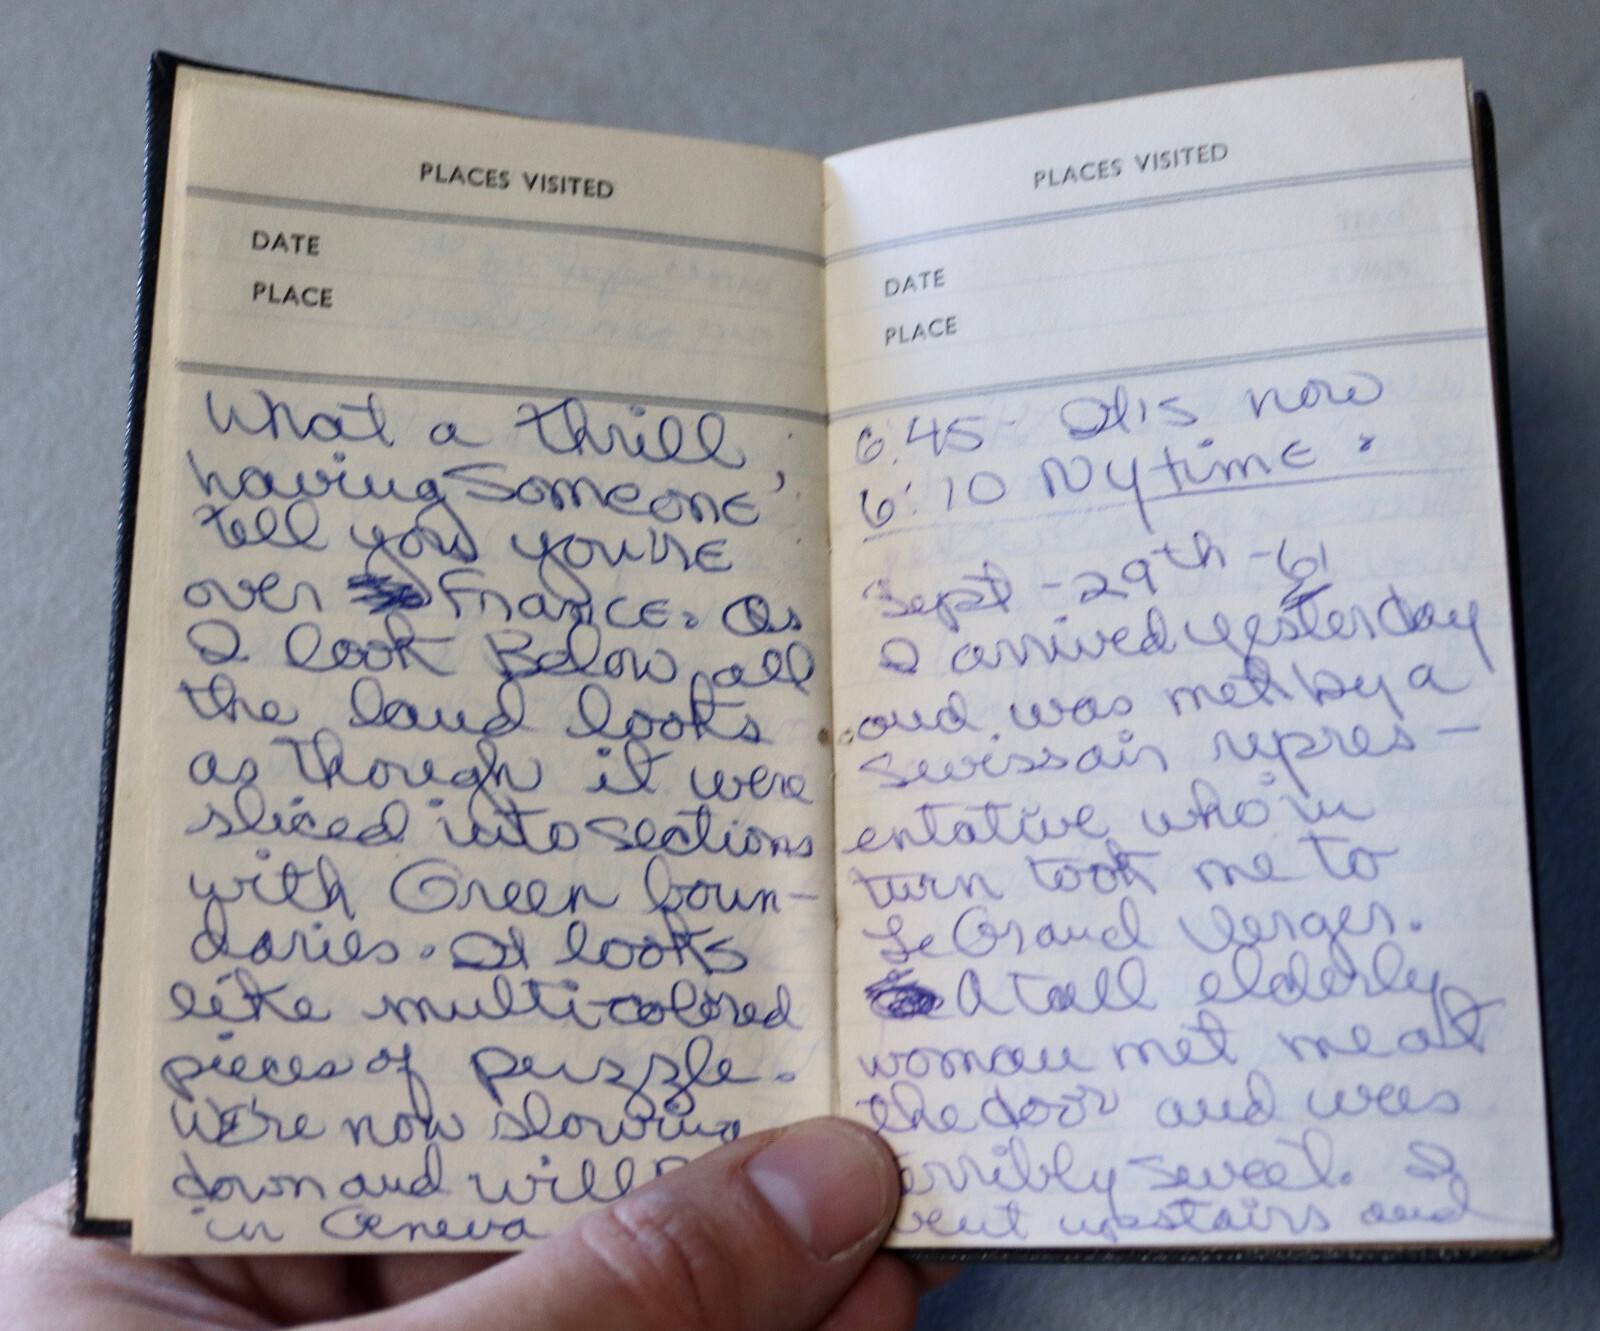 PLACES VISITED
DATE
PLACE
What a thrill
having someone
tell you you're
over France. As
I look Below, all
the land looks
as though it were
sliced into sections
with Green boun-
daries. It looks
like multi-colored
pieces of puzzle.
We're now slowing
down and will
in Geneva
PLACES VISITED
DATE
PLACE
6:45 - It is now
6:10 Ny time.
Sept - 29th - 61
I arrived yesterday
and was met by a
Swissair repres-
entative who in
turn took me to
Le Grand Verger.
A tall elderly
woman met me at
the door and was
terribly sweet. I
went upstairs and